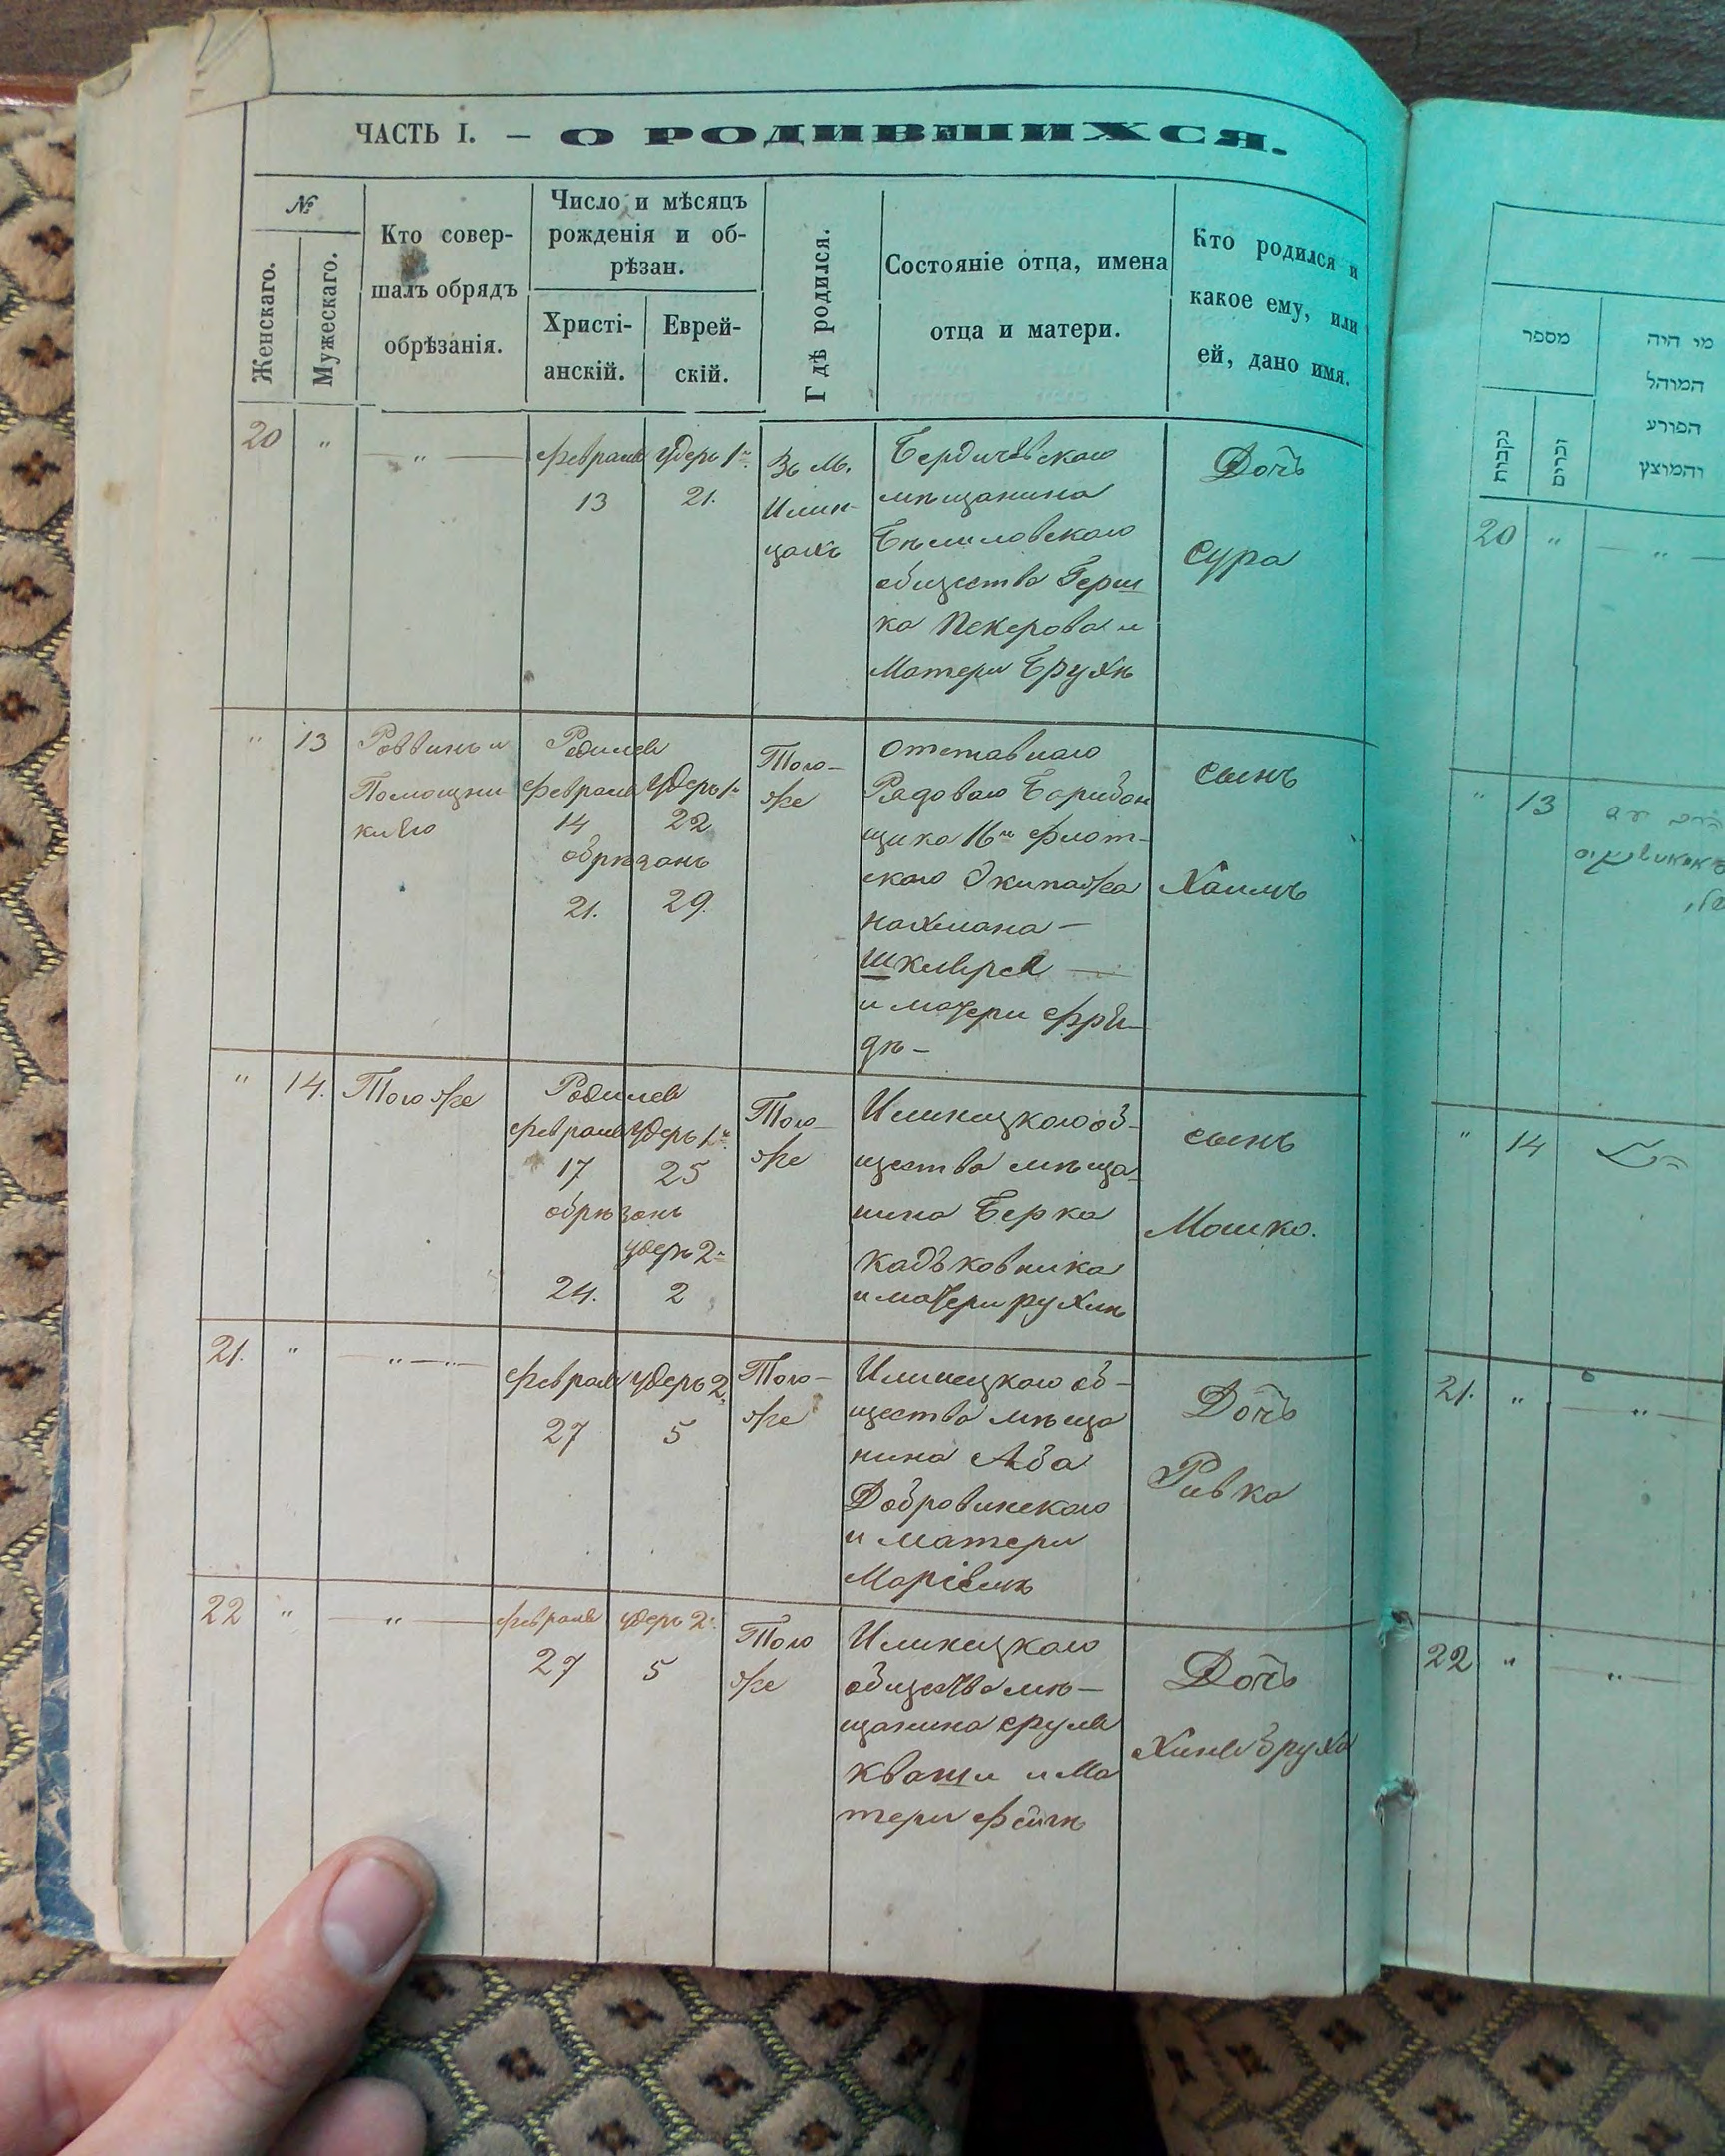 ЧАСТЬ I. — О РОДИВШИХСЯ.
№
Женскаго.
Мужескаго.
Кто совер-
шалъ обрядъ
обрѣзанія.
Число и мѣсяцъ
рожденія и об-
рѣзан.
Христі-
анскій.
Еврей-
скій.
Гдѣ родился.
Состояніе отца, имена
отца и матери.
Кто родился и
какое ему, или
ей, дано имя.
20 „ — „ —
Февраля
13
Удеръ 1й
21.
Въ М.
Илин-
цахъ
Бердичевскаго
мѣщанина
Бѣлиловскаго
общества Герш
ка Пекерова и
Матери Брухѣ
Дочь
Сура
„ 13
Раввинъ и
Помощни
ки Его
Родился
Февраля Удеръ 1й
14 22
обрѣзанъ
21. 29.
Того-
же
Отставнаго
Рядоваго Барабан
щика 16го Флот-
скаго Экипажа
Нахмана —
Шкляра —
и матери Фрей-
дѣ —
Сынъ
Хаимъ
„ 14. Того же
Родился
Февраля Удеръ 1й
17 25
обрѣзанъ
Удеръ 2й
24. 2
Того-
же
Илинецкаго об-
щества мѣща-
нина Берка
Кадьковника
и матери Рухли
Сынъ
Мошко.
21. „ „ — „
Февраля Удеръ 2.
27 5
Того-
же
Илинецкаго об-
щества мѣща
нина Аба
Добровинскаго
и матери
Маріемѣ
Дочь
Ривка
22 „ — „ —
Февраля Удеръ 2й
27 5
Того
же
Илинецкаго
общества мѣ-
щанина Сруля
Кваши и Ма
тери Фейгѣ
Дочь
Хиня Бруха
מספר
נקבות
זכרים
מי היה
המוהל
הפורע
והמוצץ
20 „ — „ —
„ 13
„ 14
21. „ — „ —
22 „ — „ —